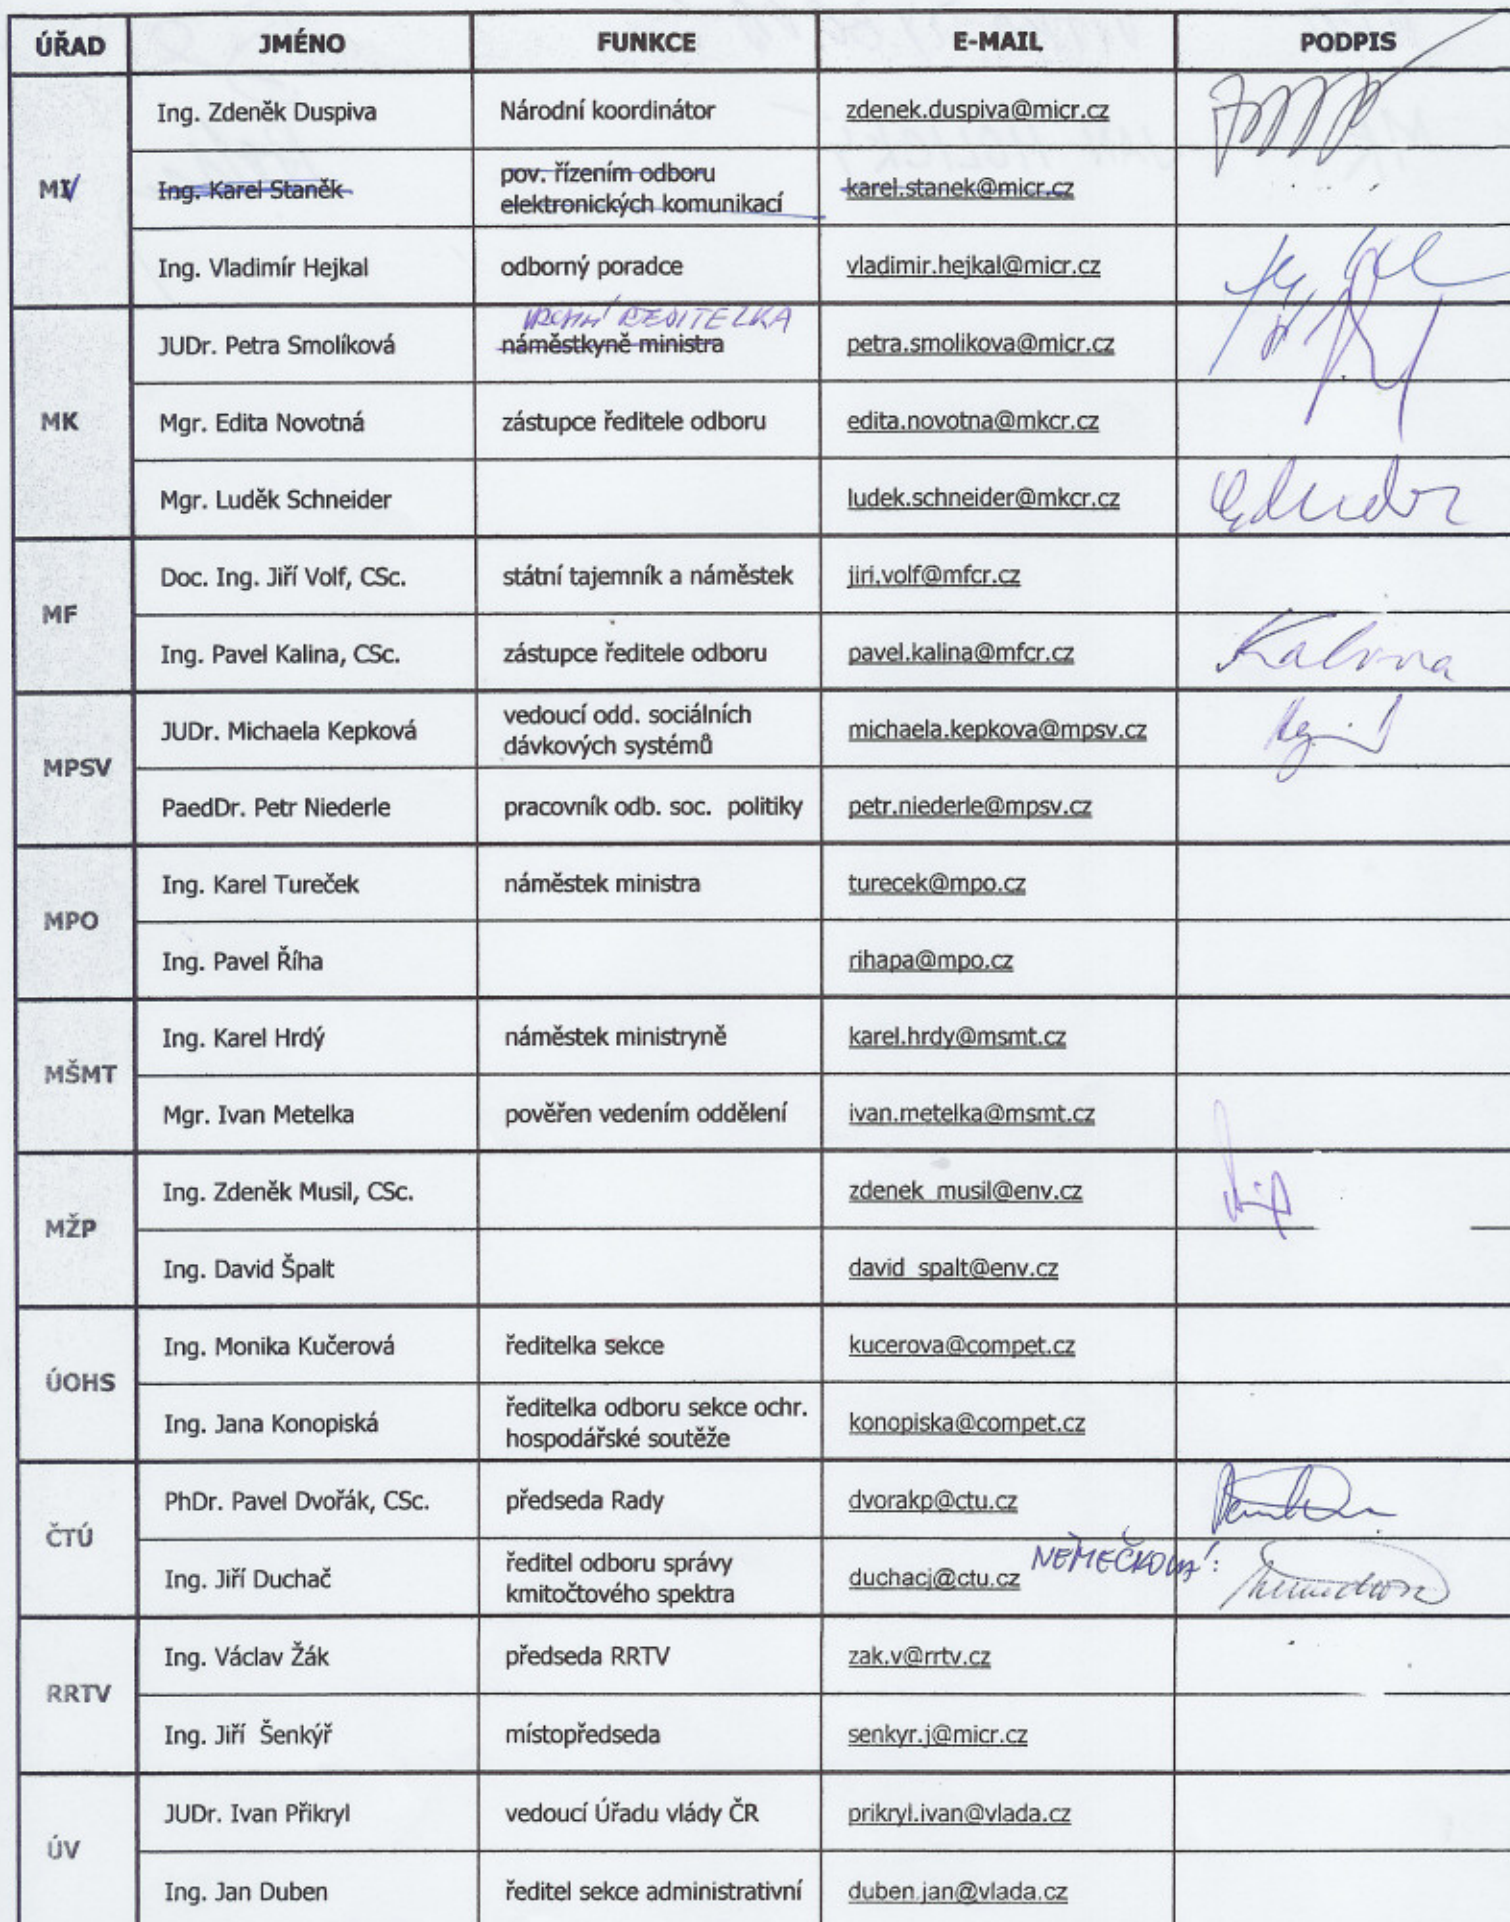 ÚŘAD JMÉNO FUNKCE E-MAIL PODPIS
Ing. Zdeněk Duspiva Národní koordinátor zdenek.duspiva@micr.cz
MV Ing. Karel Staněk pov. řízením odboru elektronických komunikací karel.stanek@micr.cz
Ing. Vladimír Hejkal odborný poradce vladimir.hejkal@micr.cz
VRCHNÍ ŘEDITELKA
JUDr. Petra Smolíková náměstkyně ministra petra.smolikova@micr.cz
MK Mgr. Edita Novotná zástupce ředitele odboru edita.novotna@mkcr.cz
Mgr. Luděk Schneider ludek.schneider@mkcr.cz
MF
Doc. Ing. Jiří Volf, CSc. státní tajemník a náměstek jiri.volf@mfcr.cz
Ing. Pavel Kalina, CSc. zástupce ředitele odboru pavel.kalina@mfcr.cz Kalina
MPSV
JUDr. Michaela Kepková vedoucí odd. sociálních dávkových systémů michaela.kepkova@mpsv.cz
PaedDr. Petr Niederle pracovník odb. soc. politiky petr.niederle@mpsv.cz
MPO
Ing. Karel Tureček náměstek ministra turecek@mpo.cz
Ing. Pavel Říha rihapa@mpo.cz
MŠMT
Ing. Karel Hrdý náměstek ministryně karel.hrdy@msmt.cz
Mgr. Ivan Metelka pověřen vedením oddělení ivan.metelka@msmt.cz
MŽP
Ing. Zdeněk Musil, CSc. zdenek_musil@env.cz
Ing. David Špalt david_spalt@env.cz
ÚOHS
Ing. Monika Kučerová ředitelka sekce kucerova@compet.cz
Ing. Jana Konopiská ředitelka odboru sekce ochr. hospodářské soutěže konopiska@compet.cz
ČTÚ
PhDr. Pavel Dvořák, CSc. předseda Rady dvorakp@ctu.cz
Ing. Jiří Duchač ředitel odboru správy kmitočtového spektra duchacj@ctu.cz NĚMEČKOVÁ:
RRTV
Ing. Václav Žák předseda RRTV zak.v@rrtv.cz
Ing. Jiří Šenkýř místopředseda senkyr.j@micr.cz
ÚV
JUDr. Ivan Přikryl vedoucí Úřadu vlády ČR prikryl.ivan@vlada.cz
Ing. Jan Duben ředitel sekce administrativní duben.jan@vlada.cz